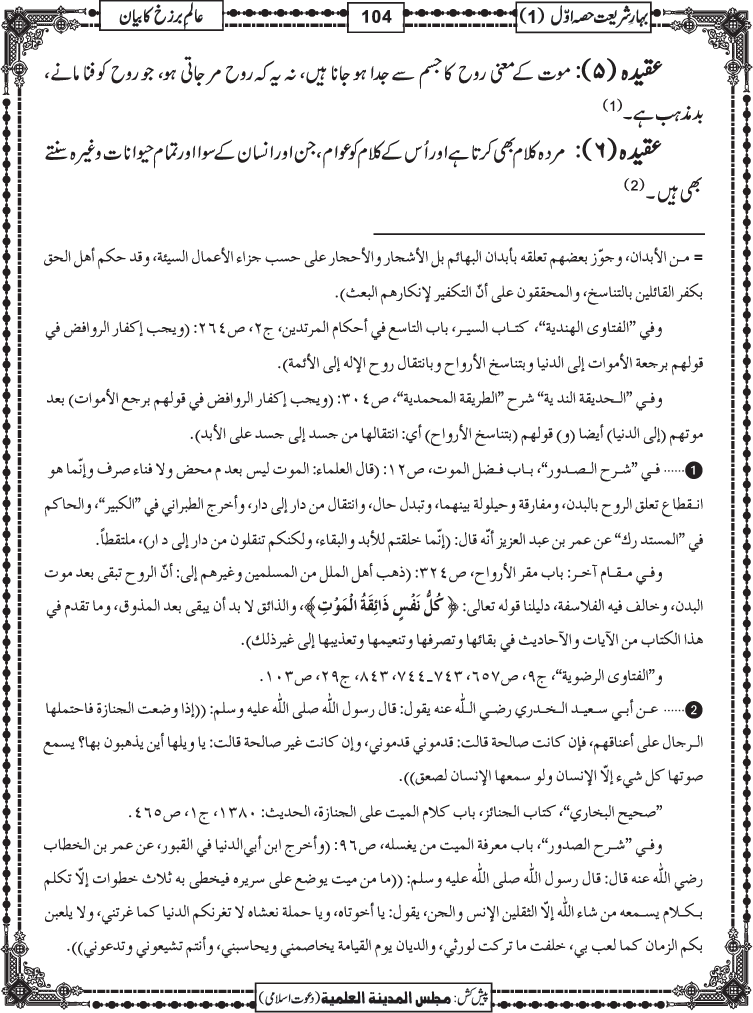 بہارِشریعت حصہ اوّل (1)
104
عالمِ برزخ کا بیان
عقیدہ (۵): موت کے معنی روح کا جسم سے جدا ہو جانا ہیں، نہ یہ کہ روح مر جاتی ہو، جو روح کو فنا مانے،
بد مذہب ہے۔ (1)
عقیدہ (٦): مردہ کلام بھی کرتا ہے اور اُس کے کلام کو عوام، جن اور انسان کے سوا اور تمام حیوانات وغیرہ سنتے
بھی ہیں۔ (2)
= مـن الأبدان، وجوّز بعضهم تعلقه بأبدان البهائم بل الأشجار والأحجار على حسب جزاء الأعمال السيئة، وقد حكم أهل الحق
بكفر القائلين بالتناسخ، والمحققون على أنّ التكفير لإنكارهم البعث).
وفي ”الفتاوى الهندية“، كتـاب السيـر، باب التاسع في أحكام المرتدين، ج٢، ص٢٦٤: (ويجب إكفار الروافض في
قولهم برجعة الأموات إلى الدنيا وبتناسخ الأرواح وبانتقال روح الإله إلى الأئمة).
وفـي ”الـحديقة الندية“ شرح ”الطريقة المحمدية“، ص٣٠٤: (ويجب إكفار الروافض في قولهم برجع الأموات) بعد
موتهم (إلى الدنيا) أيضا (و) قولهم (بتناسخ الأرواح) أي: انتقالها من جسد إلى جسد على الأبد).
1 ...... فـي ”شـرح الـصـدور“، بـاب فـضل الموت، ص١٢: (قال العلماء: الموت ليس بعدم محض ولا فناء صرف وإنّما هو
انـقطاع تعلق الروح بالبدن، ومفارقة وحيلولة بينهما، وتبدل حال، وانتقال من دار إلى دار، وأخرج الطبراني في ”الكبير“، والحاكم
في ”المستدرك“ عن عمر بن عبد العزيز أنّه قال: (إنّما خلقتم للأبد والبقاء، ولكنكم تنقلون من دار إلى دار)، ملتقطاً.
وفـي مـقـام آخـر: باب مقر الأرواح، ص٣٢٤: (ذهب أهل الملل من المسلمين وغيرهم إلى: أنّ الروح تبقى بعد موت
البدن، وخالف فيه الفلاسفة، دليلنا قوله تعالى: ﴿ كُلُّ نَفْسٍ ذَائِقَةُ الْمَوْتِ ﴾، والذائق لا بد أن يبقى بعد المذوق، وما تقدم في
هذا الكتاب من الآيات والأحاديث في بقائها وتصرفها وتنعيمها وتعذيبها إلى غيرذلك).
و”الفتاوى الرضوية“، ج٩، ص٦٥٧، ٧٤٣-٧٤٤، ٨٤٣، ج٢٩، ص١٠٣.
2 ...... عـن أبـي سـعيـد الـخـدري رضـي الـلّٰه عنه يقول: قال رسول اللّٰه صلى اللّٰه عليه وسلم: ((إذا وضعت الجنازة فاحتملها
الـرجال على أعناقهم، فإن كانت صالحة قالت: قدموني قدموني، وإن كانت غير صالحة قالت: يا ويلها أين يذهبون بها؟ يسمع
صوتها كل شيء إلّا الإنسان ولو سمعها الإنسان لصعق)).
”صحيح البخاري“، كتاب الجنائز، باب كلام الميت على الجنازة، الحديث: ١٣٨٠، ج١، ص٤٦٥.
وفـي ”شـرح الصدور“، باب معرفة الميت من يغسله، ص٩٦: (وأخرج ابن أبي الدنيا في القبور، عن عمر بن الخطاب
رضي اللّٰه عنه قال: قال رسول اللّٰه صلى اللّٰه عليه وسلم: ((ما من ميت يوضع على سريره فيخطى به ثلاث خطوات إلّا تكلم
بـكـلام يسـمعه من شاء اللّٰه إلّا الثقلين الإنس والجن، يقول: يا أخوتاه، ويا حملة نعشاه لا تغرنكم الدنيا كما غرتني، ولا يلعبن
بكم الزمان كما لعب بي، خلفت ما تركت لورثي، والديان يوم القيامة يخاصمني ويحاسبني، وأنتم تشيعوني وتدعوني)).
پیش کش: مجلس المدينة العلمية (دعوت اسلامی)